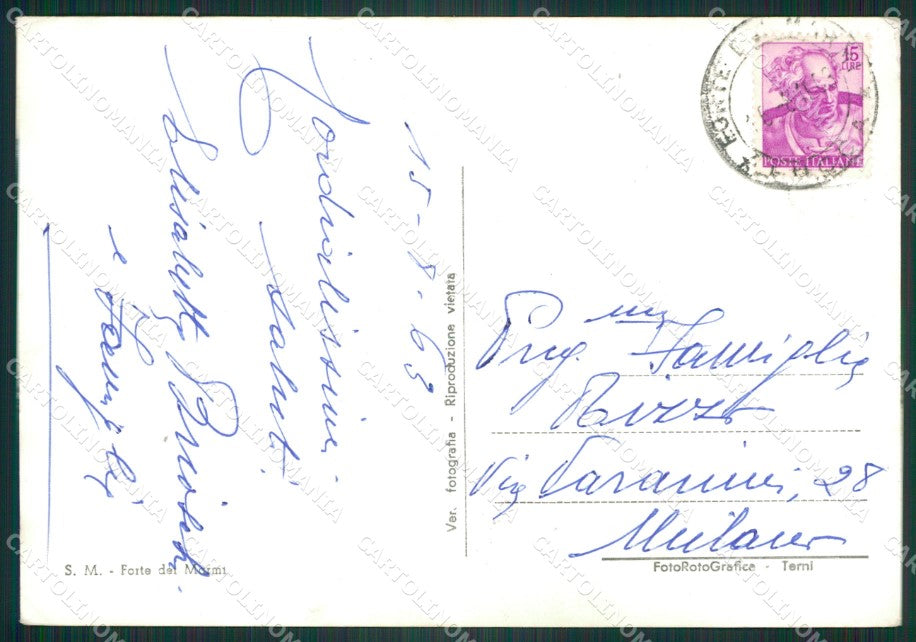 15-8-63
Cordialissimi
saluti
Elisabetta
e Famiglia
S. M. - Forte dei Marmi
Ver. fotografia - Riproduzione vietata
15
LIRE
POSTE ITALIANE
Preg. ma Famiglia
Rizzo
Via Taramini, 28
Milano
FotoRotoGrafica - Terni
CARTOLINOMANIA